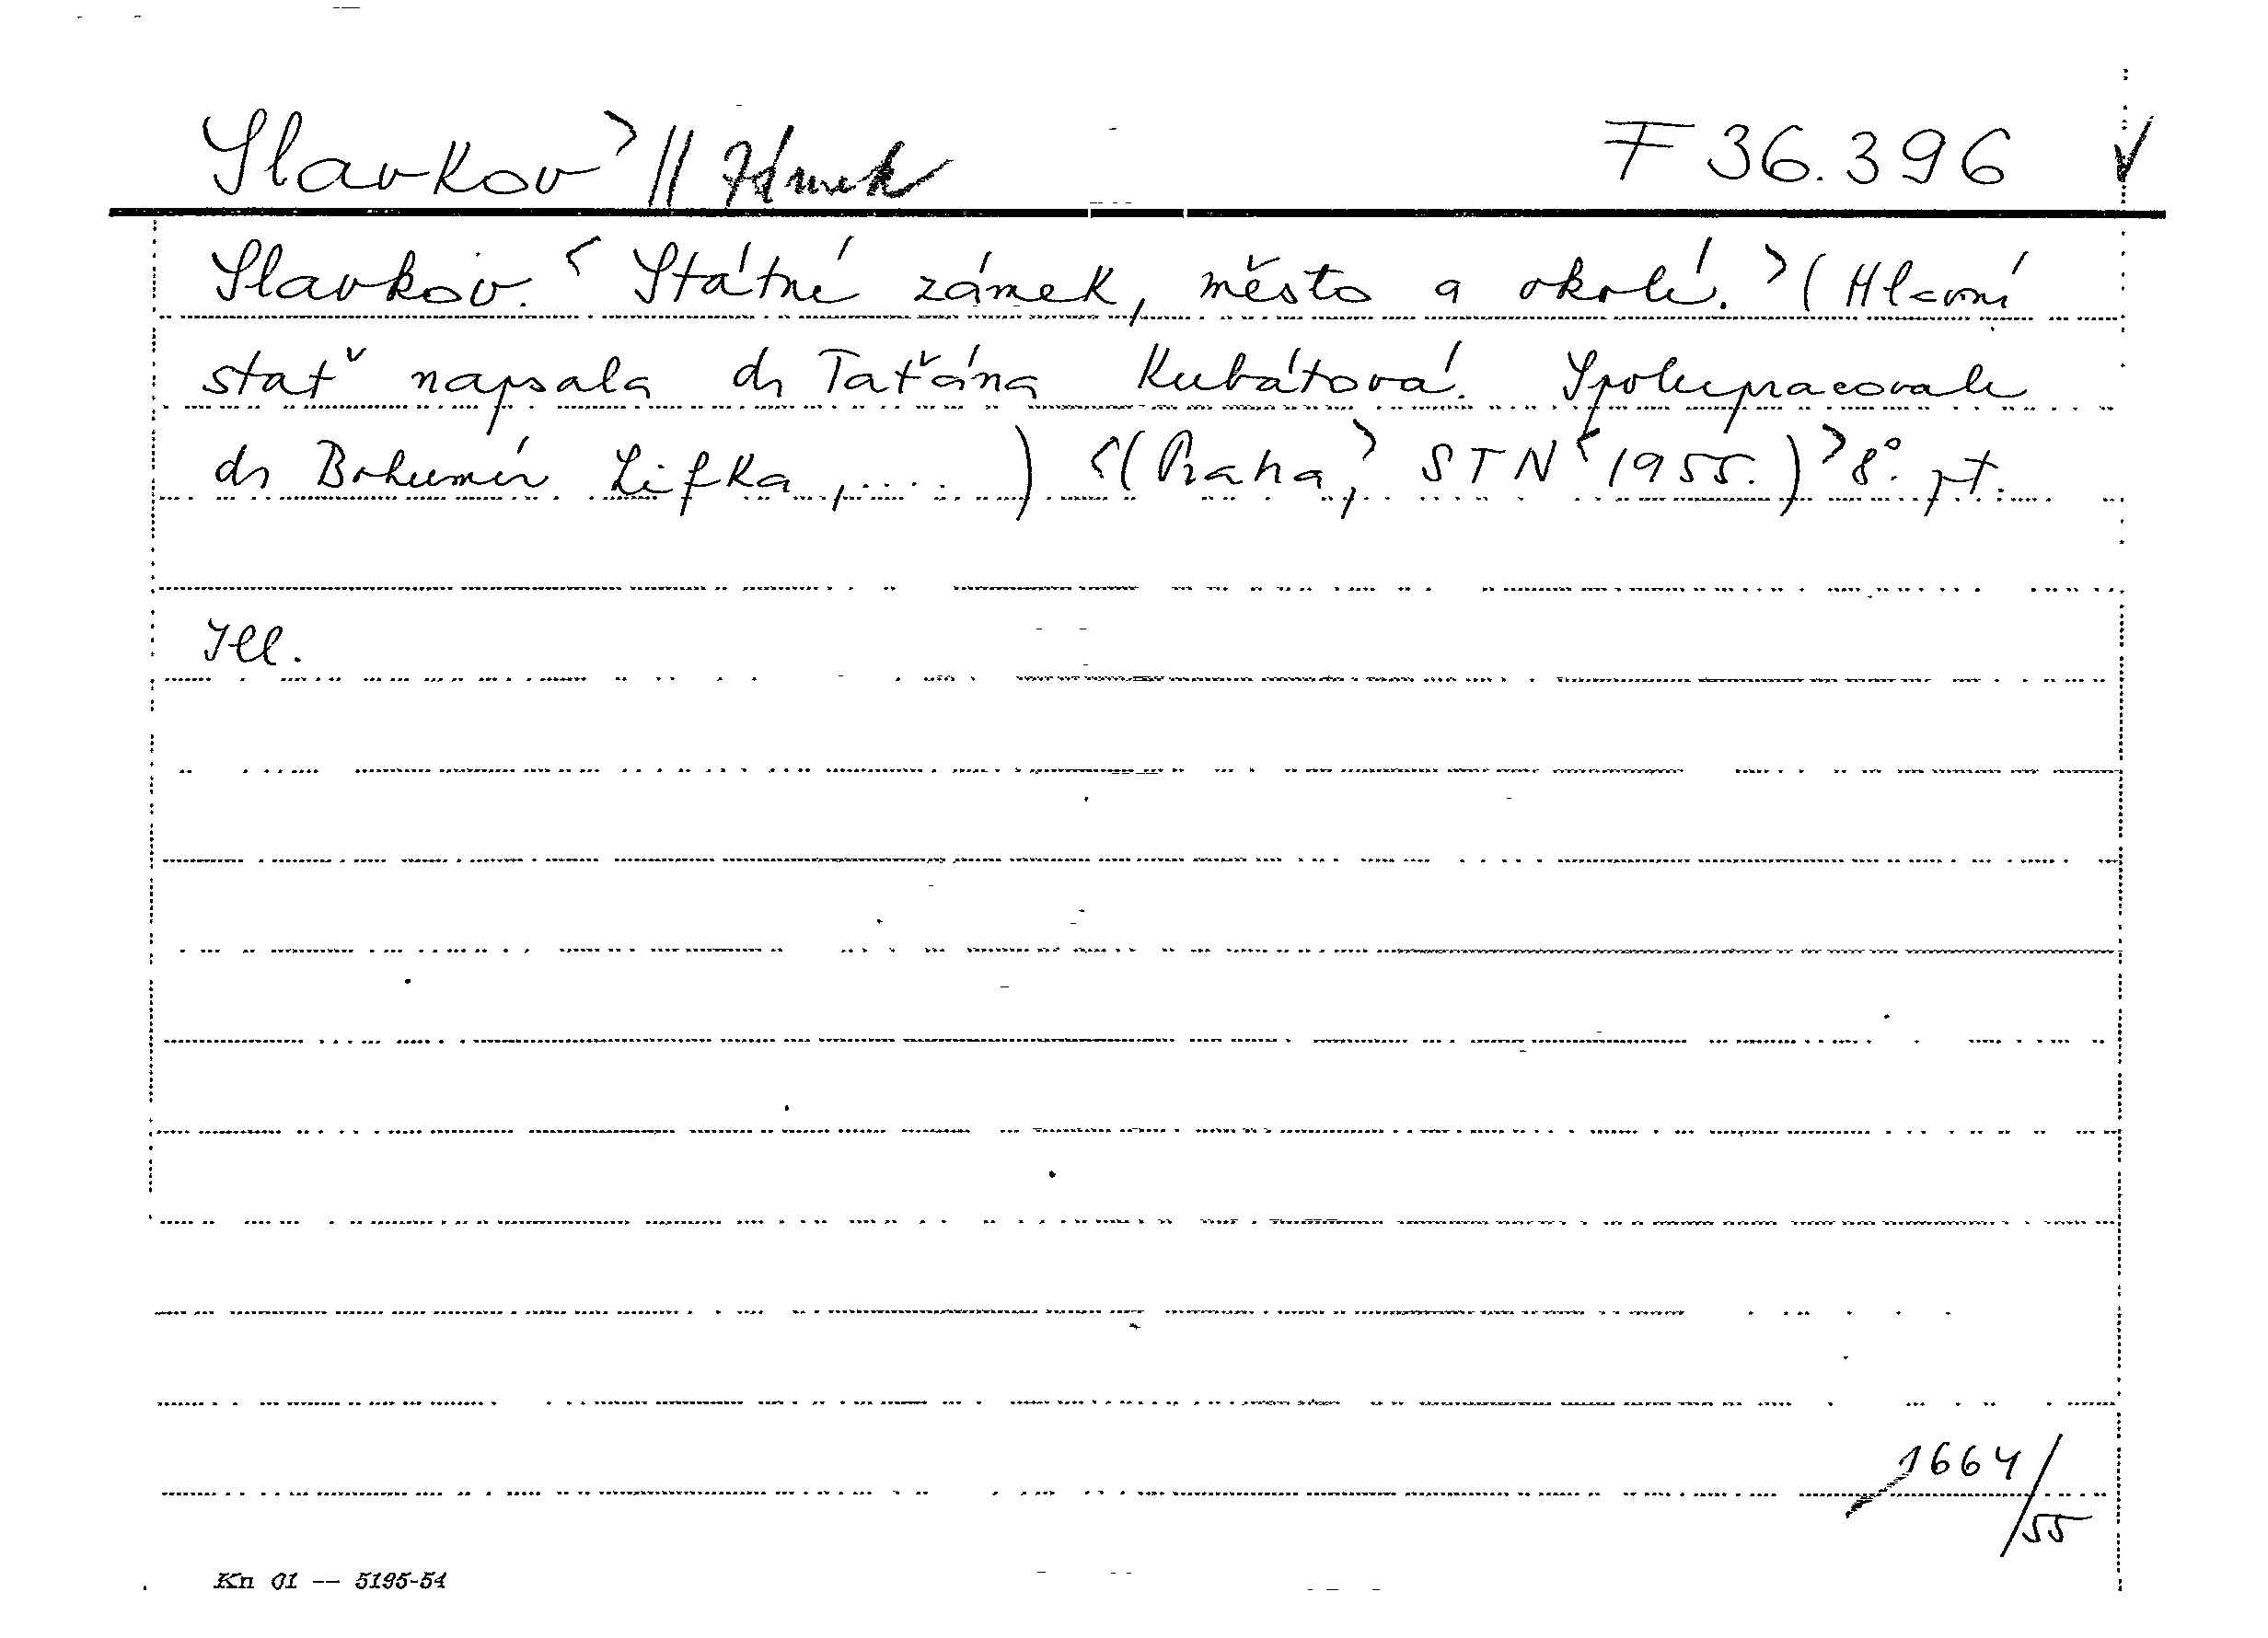 Slavkov> // Zámek F 36.396 √
Slavkov. <Státní zámek, město a okolí.> (Hlavní
stať napsala dr Taťána Kubátová. Spolupracovali
dr Bohumír Lifka, ....) <(Praha,> STN <1955.)> 8°. pt.
Ill.
1664/55
Kn 01 -- 5195-54